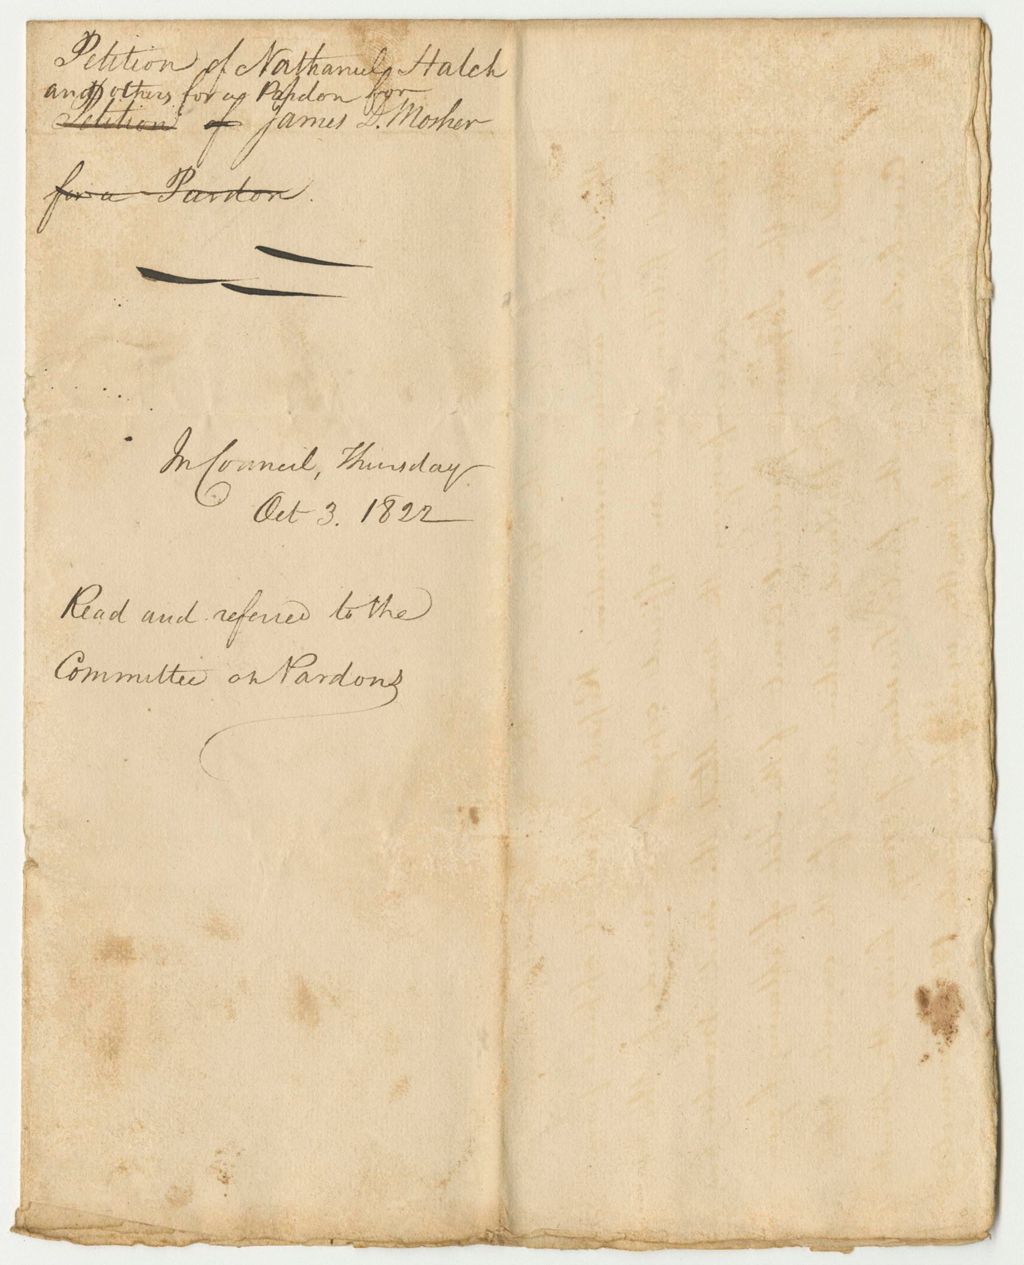 Petition of Nathaniel Hatch
and others for a Pardon for
Petition of James D. Mosher
for a Pardon.
In Council, Thursday
Oct 3. 1822
Read and referred to the
Committee on Pardons